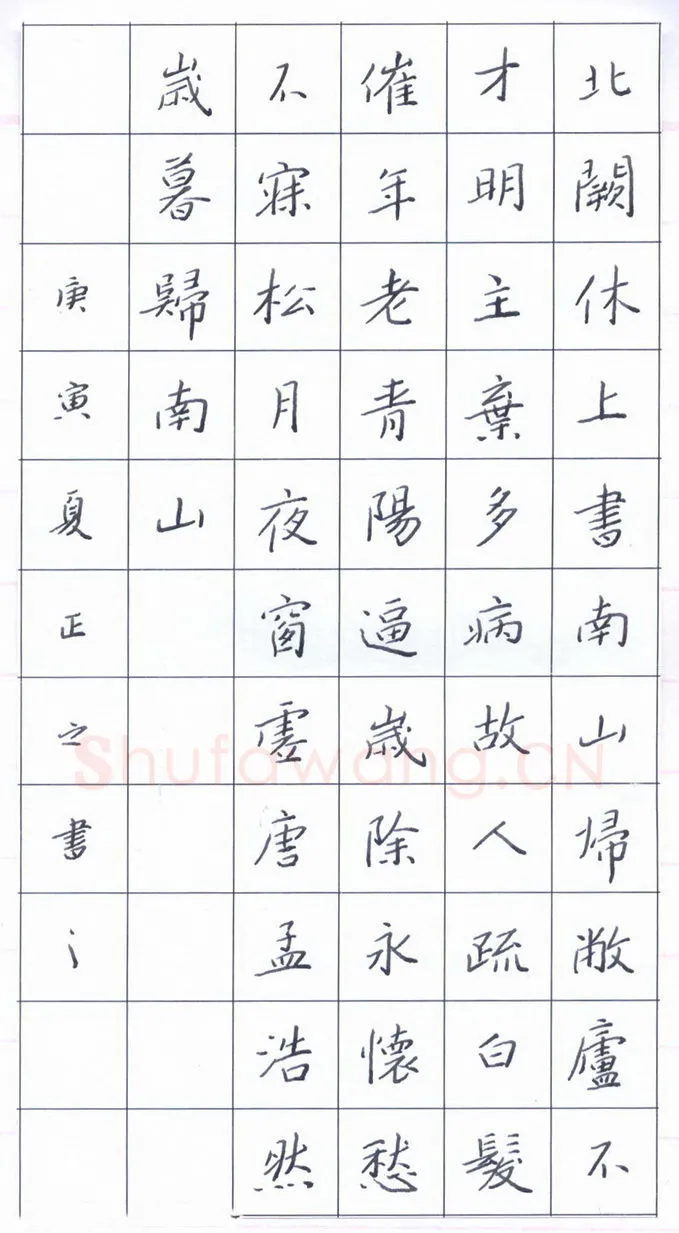 北闕休上書南山帰敝廬不
才明主棄多病故人疏白髮
催年老青陽逼歲除永懷愁
不寐松月夜窗虛唐孟浩然
歲暮歸南山
庚寅夏正之書
Shufawang.CN